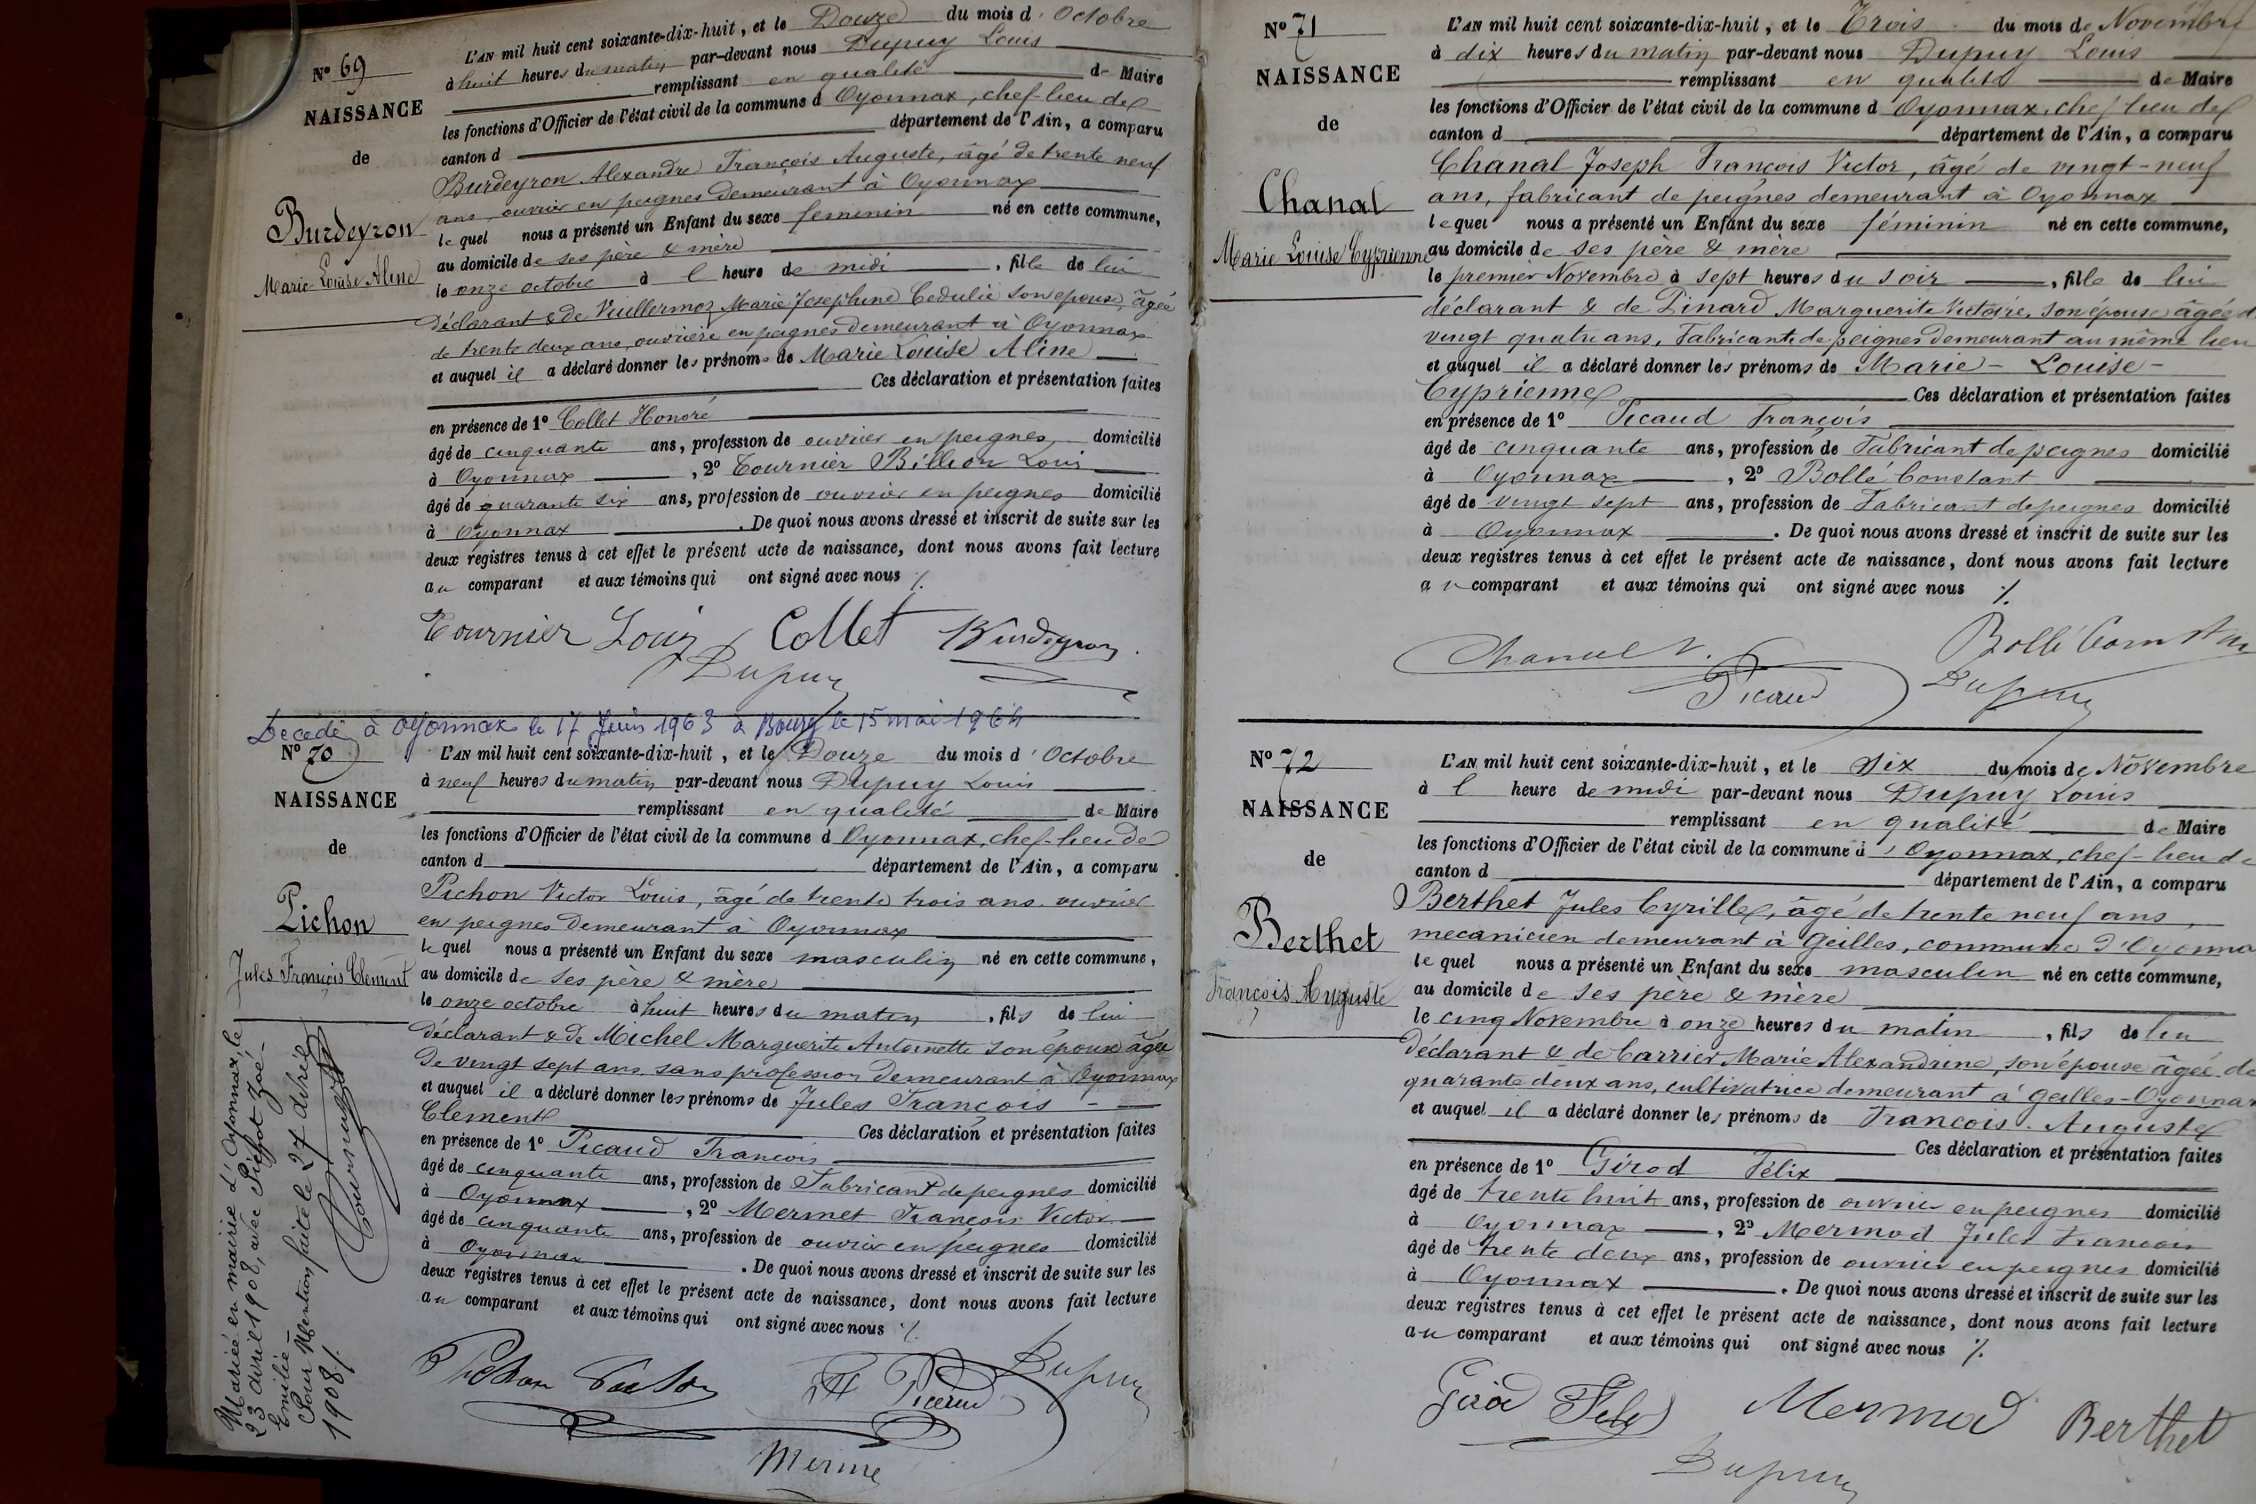 N° 69
NAISSANCE
de
Burdeyron
Marie Louise Aline
L'AN mil huit cent soixante-dix-huit, et le Douze du mois d'Octobre
à huit heures du matin par-devant nous Dupuy Louis
remplissant en qualité de Maire
les fonctions d'Officier de l'état civil de la commune d'Oyonnax, chef lieu de
canton d département de l'Ain, a comparu
Burdeyron Alexandre François Auguste, âgé de trente neuf
ans, ouvrier en peignes demeurant à Oyonnax
lequel nous a présenté un Enfant du sexe féminin né en cette commune,
au domicile de ses père & mère
le onze octobre à 1 heure de midi, fille de lui
déclarant & de Vuillermoz Marie Josephine Cedulie son épouse, âgée
de trente deux ans, ouvrière en peignes demeurant à Oyonnax
et auquel il a déclaré donner les prénoms de Marie Louise Aline
Ces déclaration et présentation faites
en présence de 1° Collet Honoré
âgé de cinquante ans, profession de ouvrier en peignes, domicilié
à Oyonnax, 2° Tournier Billion Louis
âgé de quarante six ans, profession de ouvrier en peignes domicilié
à Oyonnax. De quoi nous avons dressé et inscrit de suite sur les
deux registres tenus à cet effet le présent acte de naissance, dont nous avons fait lecture
au comparant et aux témoins qui ont signé avec nous ./.
Tournier Louis Collet Burdeyron
Dupuy
Décédé à Oyonnax le 17 Juin 1963 à Bourg le 15 mai 1964
N° 70
NAISSANCE
de
Pichon
Jules François Clément
Mariée en mairie d'Oyonnax, le
23 avril 1908, avec Zoé-
Emilie
Pour Mention faite le 27 avril
1908 ./.
L'AN mil huit cent soixante-dix-huit, et le Douze du mois d'Octobre
à neuf heures du matin par-devant nous Dupuy Louis
remplissant en qualité de Maire
les fonctions d'Officier de l'état civil de la commune d Oyonnax, chef-lieu de
canton d département de l'Ain, a comparu
Pichon Victor Louis, âgé de trente trois ans, ouvrier
en peignes demeurant à Oyonnax
lequel nous a présenté un Enfant du sexe masculin né en cette commune,
au domicile de ses père & mère
le onze octobre à huit heures du matin, fils de lui
déclarant & de Michel Marguerite Antoinette son épouse âgée
de vingt sept ans, sans profession demeurant à Oyonnax
et auquel il a déclaré donner les prénoms de Jules François -
Clément Ces déclaration et présentation faites
en présence de 1° Picaud François
âgé de cinquante ans, profession de Fabricant de peignes domicilié
à Oyonnax, 2° Mermet François Victor
âgé de cinquante ans, profession de ouvrier en peignes domicilié
à Oyonnax. De quoi nous avons dressé et inscrit de suite sur les
deux registres tenus à cet effet le présent acte de naissance, dont nous avons fait lecture
au comparant et aux témoins qui ont signé avec nous ./.
Pichon Picaud Dupuy
N° 71
NAISSANCE
de
Chanal
Marie Louise Cyprienne
L'AN mil huit cent soixante-dix-huit, et le Trois du mois de Novembre
à dix heures du matin par-devant nous Dupuy Louis
remplissant en qualité de Maire
les fonctions d'Officier de l'état civil de la commune d'Oyonnax, chef lieu de
canton d département de l'Ain, a comparu
Chanal Joseph François Victor, âgé de vingt-neuf
ans, fabricant de peignes demeurant à Oyonnax
lequel nous a présenté un Enfant du sexe féminin né en cette commune,
au domicile de ses père & mère
le premier Novembre à sept heures du soir, fille de lui
déclarant & de Pinard Marguerite Victoire, son épouse âgée d
vingt quatre ans, Fabricante de peignes demeurant au même lieu
et auquel il a déclaré donner les prénoms de Marie - Louise -
Cyprienne Ces déclaration et présentation faites
en présence de 1° Picaud François
âgé de cinquante ans, profession de Fabricant de peignes domicilié
à Oyonnax, 2° Bollé Constant
âgé de vingt sept ans, profession de Fabricant de peignes domicilié
à Oyonnax. De quoi nous avons dressé et inscrit de suite sur les
deux registres tenus à cet effet le présent acte de naissance, dont nous avons fait lecture
au comparant et aux témoins qui ont signé avec nous ./.
Chanal V. Bollé Constan
Picaud Dupuy
N° 72
NAISSANCE
de
Berthet
François Auguste
L'AN mil huit cent soixante-dix-huit, et le Six du mois de Novembre
à 1 heure de midi par-devant nous Dupuy Louis
remplissant en qualité de Maire
les fonctions d'Officier de l'état civil de la commune d'Oyonnax, chef-lieu de
canton d département de l'Ain, a comparu
Berthet Jules Cyrille, âgé de trente neuf ans,
mecanicien demeurant à Geilles, commune d'Oyonna
lequel nous a présenté un Enfant du sexe masculin né en cette commune,
au domicile de ses père & mère
le cinq Novembre à onze heures du matin, fils de lui
déclarant & de Carrier Marie Alexandrine, son épouse âgée de
quarante deux ans, cultivatrice demeurant à Geilles-Oyonnax
et auquel il a déclaré donner les prénoms de François Auguste
Ces déclaration et présentation faites
en présence de 1° Girod Félix
âgé de trente huit ans, profession de ouvrier en peignes domicilié
à Oyonnax, 2° Mermod Jules François
âgé de trente deux ans, profession de ouvrier en peignes domicilié
à Oyonnax. De quoi nous avons dressé et inscrit de suite sur les
deux registres tenus à cet effet le présent acte de naissance, dont nous avons fait lecture
au comparant et aux témoins qui ont signé avec nous ./.
Girod Félix Mermod Berthet
Dupuy